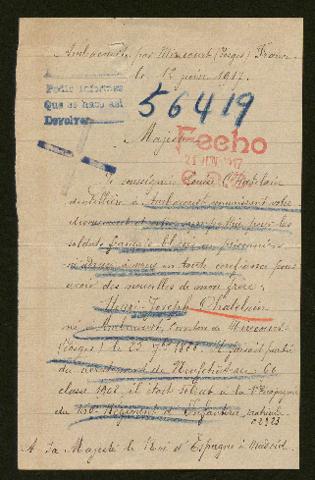 Ambacourt, par Mirecourt (Vosges) France
le 12 juin 1917.
Pedir informes
Que se haga así
Devolver
56419
Fecho
Majesté
Je soussignée Louise Chatelain
dentellière à Ambacourt connaissant votre
dévouement et votre sympathie pour les
soldats français blessés ou prisonniers
m'adresse à vous en toute confiance pour
avoir des nouvelles de mon frère:
Henri-Joseph Chatelain
né à Ambacourt, canton de Mirecourt
(Vosges) le 23
1888. Il faisait partie
du recrutement de Neufchâteau
classe 1908, il était soldat à la
Compagnie
du
Régiment d'Infanterie, matricule
02323
A Sa Majesté le Roi d'Espagne à Madrid.